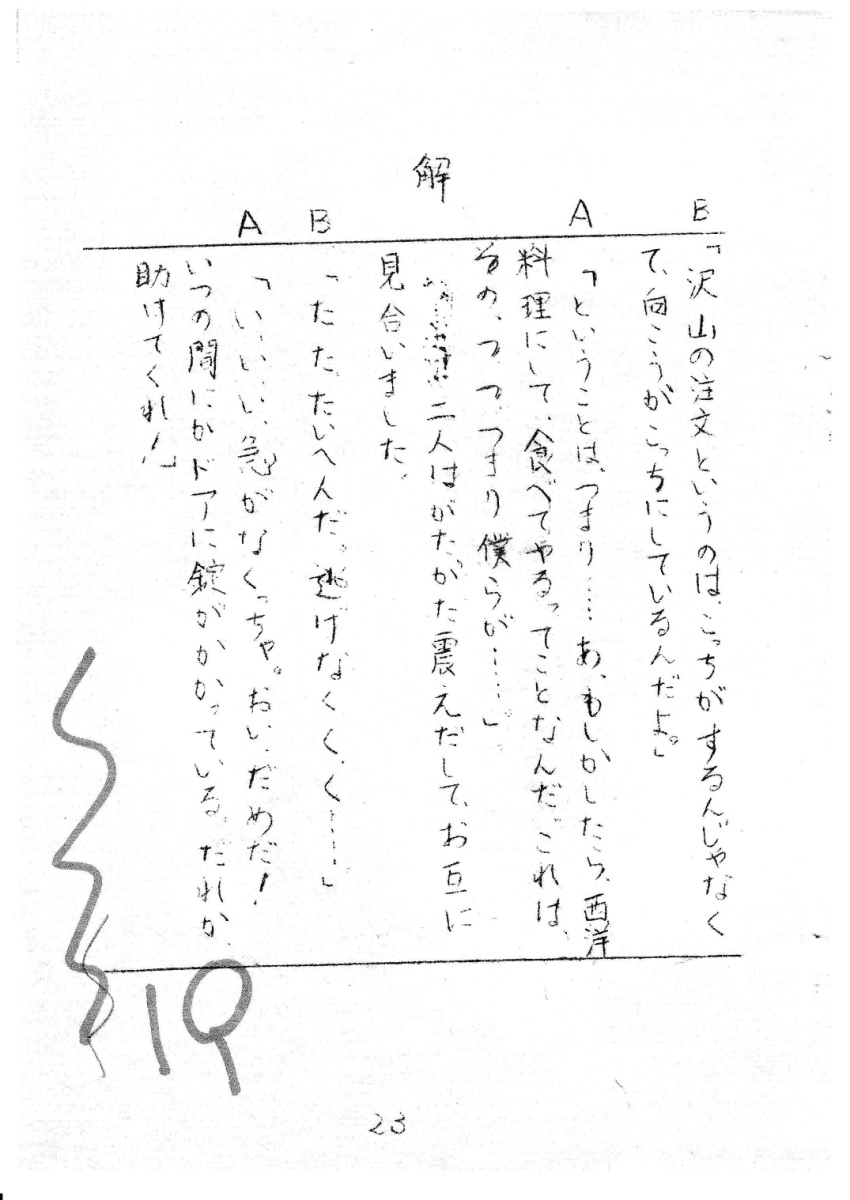 B「沢山の注文というのは、こっちがするんじゃなく
て、向こうがこっちにしているんだよ。」
A「ということは、つまり……あ、もしかしたら、西洋
料理にして、食べてやるってことなんだ。これは、
その、つ、つ、つまり僕らが……。」
解
二人はがたがた震えだして、お互に
見合いました。
B「た、た、たいへんだ。逃げなく、く、く……」
A「い、い、い、急がなくっちゃ。おい、だめだ!
いつの間にかドアに錠がかかっている。だれか、
助けてくれ!」
19
23